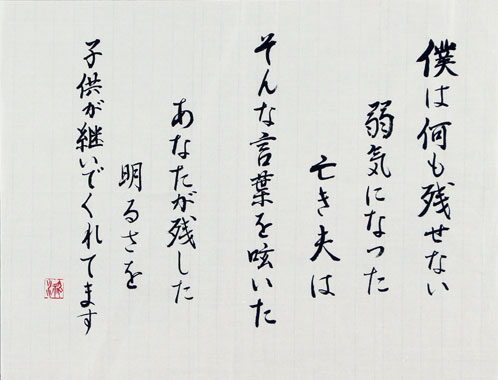 僕は何も残せない
弱気になった
亡き夫は
そんな言葉を呟いた
あなたが残した
明るさを
子供が継いでくれてます